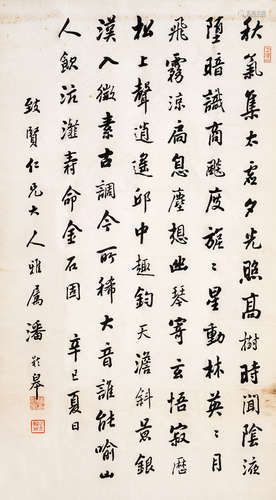 秋氣集太虛夕光照高樹時聞陰液
墮暗識商飇度旋〻星動林英〻月
飛霧涼扃息塵想幽琴寄玄悟寂歷
松上聲逍遙邱中趣鈞天澹斜景銀
漢入徵素古調今所稀大音誰能喻山
人飲沆瀣壽命金石固 辛巳夏日
致賢仁兄大人雅屬 潘齡皋